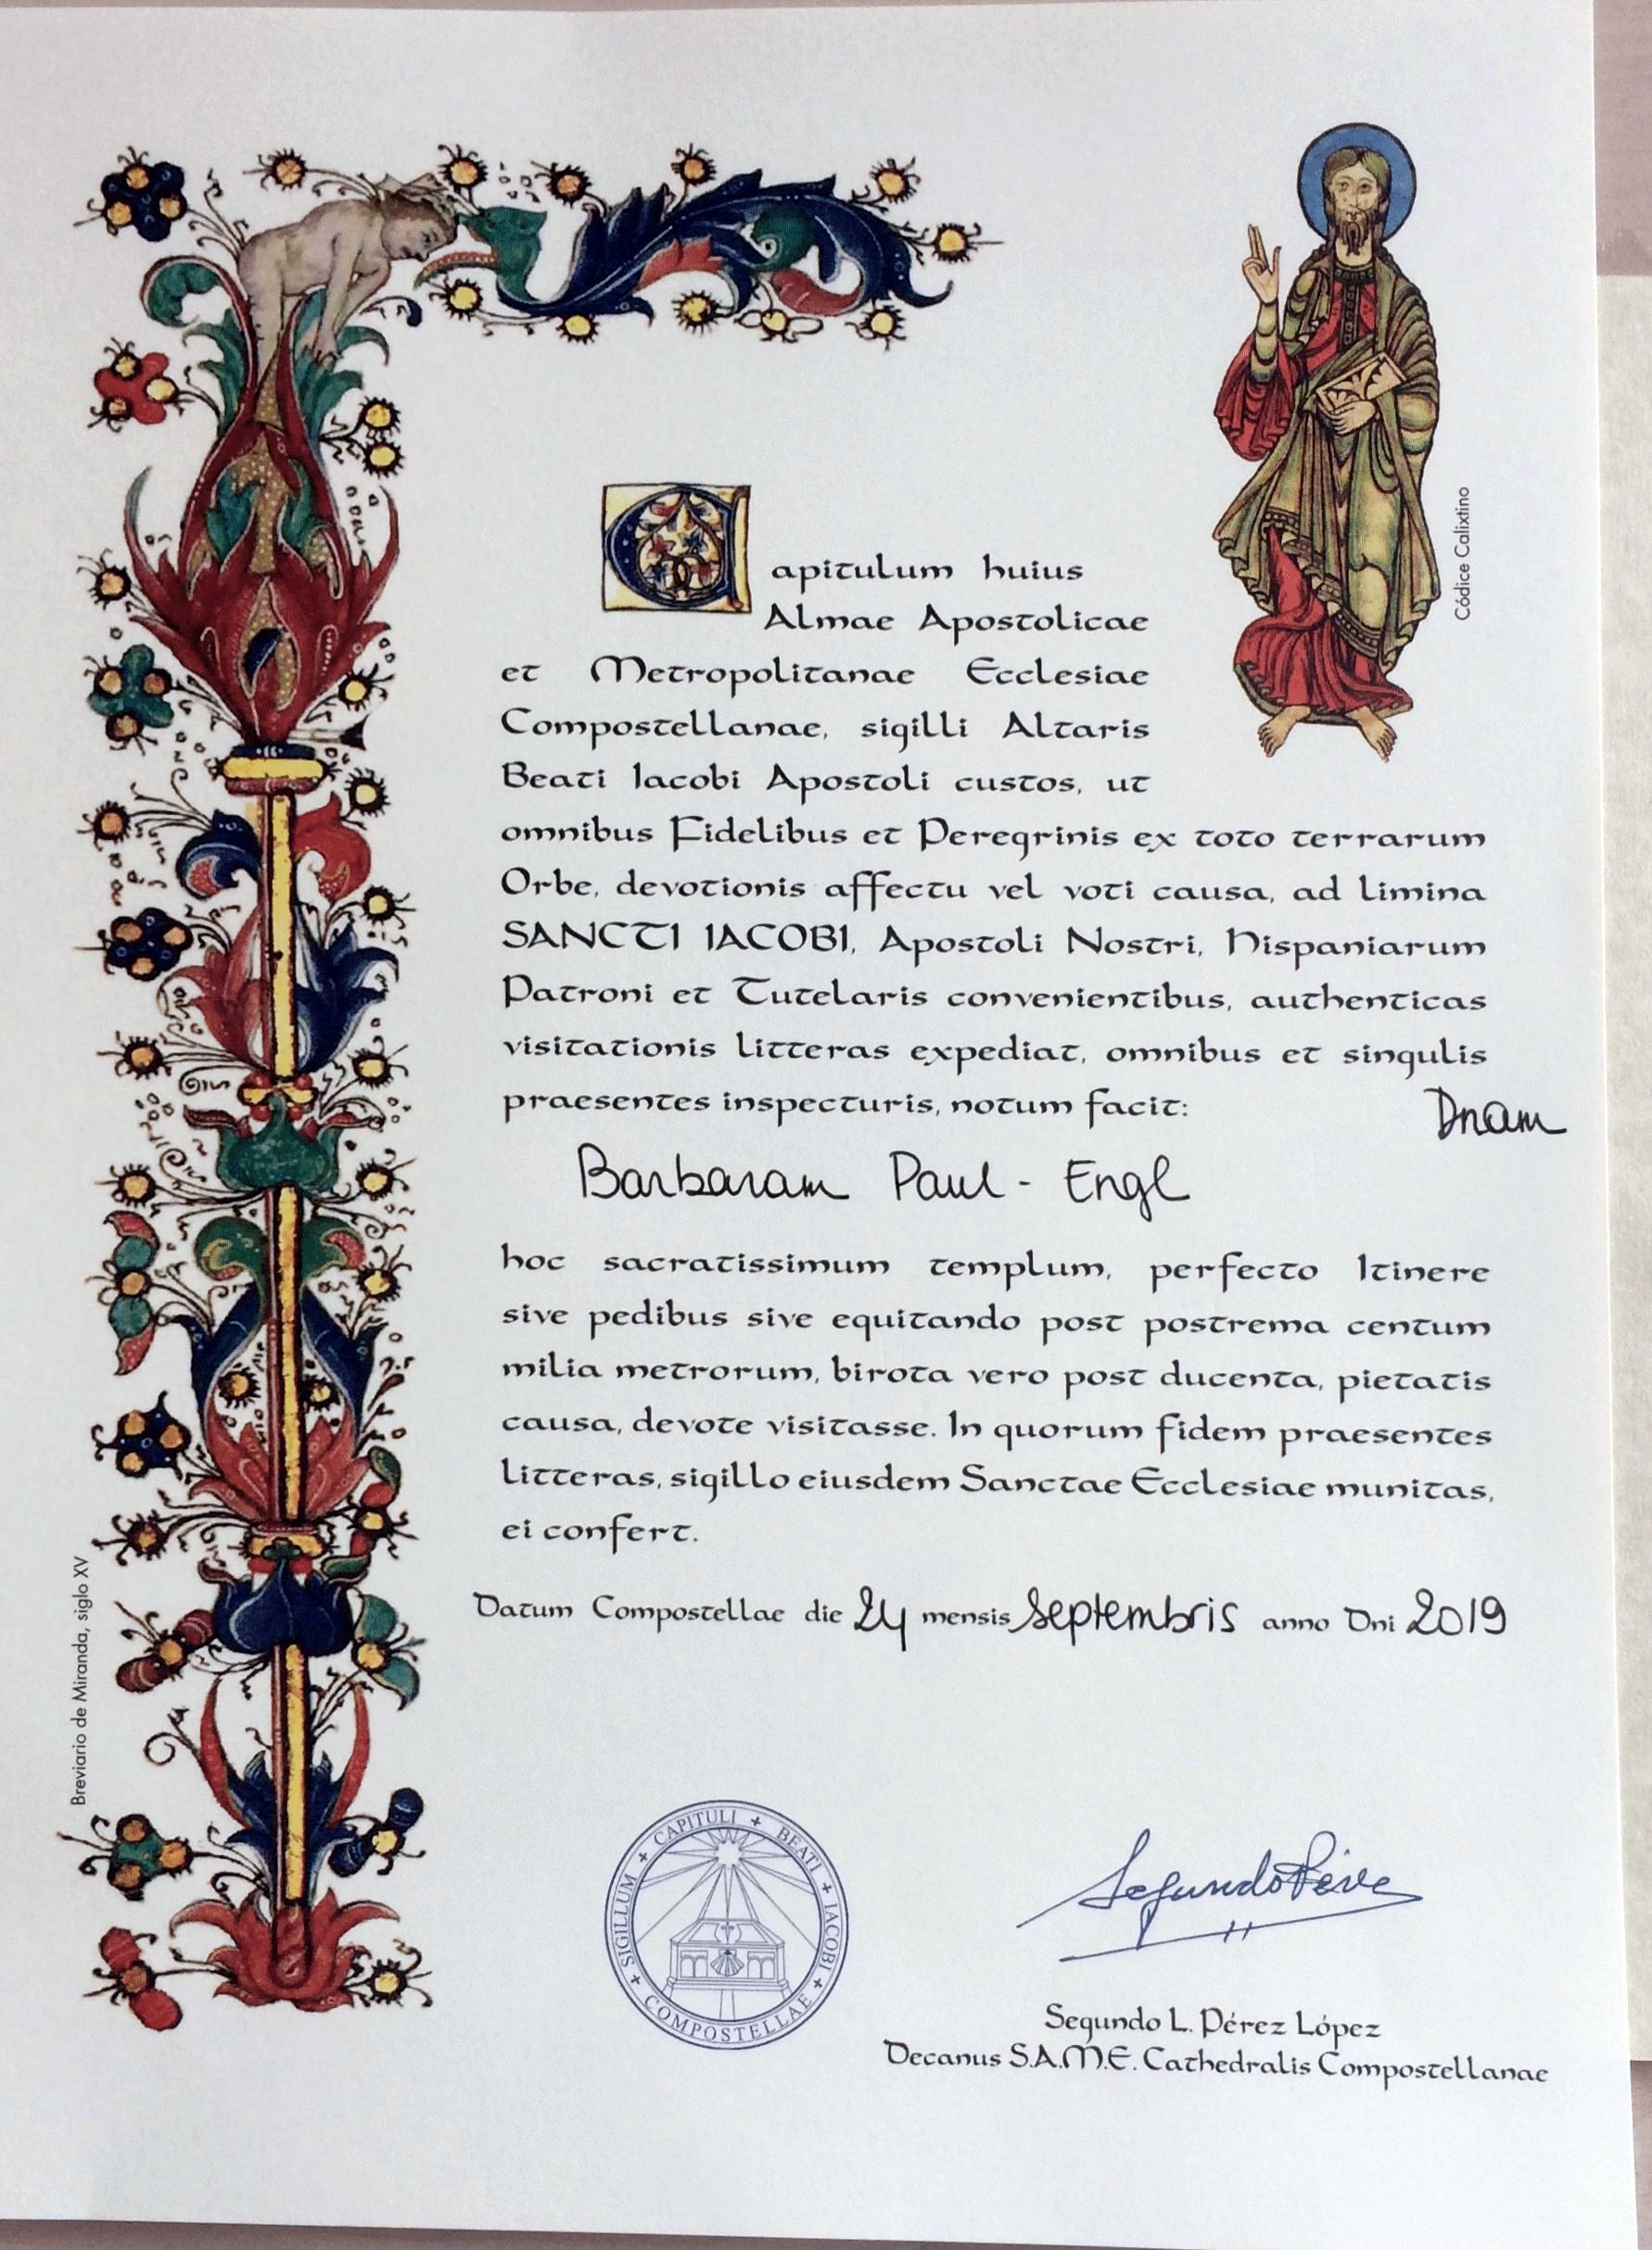 Capitulum huius
Almae Apostolicae
et Metropolitanae Ecclesiae
Compostellanae, sigilli Altaris
Beati Iacobi Apostoli custos, ut
omnibus Fidelibus et Peregrinis ex toto terrarum
Orbe, devotionis affectu vel voti causa, ad limina
SANCTI IACOBI, Apostoli Nostri, Hispaniarum
Patroni et Tutelaris convenientibus, authenticas
visitationis litteras expediat, omnibus et singulis
praesentes inspecturis, notum facit: Dnam
Barbaram Paul - Engl
hoc sacratissimum templum, perfecto Itinere
sive pedibus sive equitando post postrema centum
milia metrorum, birota vero post ducenta, pietatis
causa, devote visitasse. In quorum fidem praesentes
litteras, sigillo eiusdem Sanctae Ecclesiae munitas,
ei confert.
Datum Compostellae die 24 mensis Septembris anno Dni 2019
Códice Calixtino
Breviario de Miranda, siglo XV
SIGILLUM + CAPITULI + BEATI + IACOBI + COMPOSTELLAE +
Segundo Pérez
Segundo L. Pérez López
Decanus S.A.M.E. Cathedralis Compostellanae